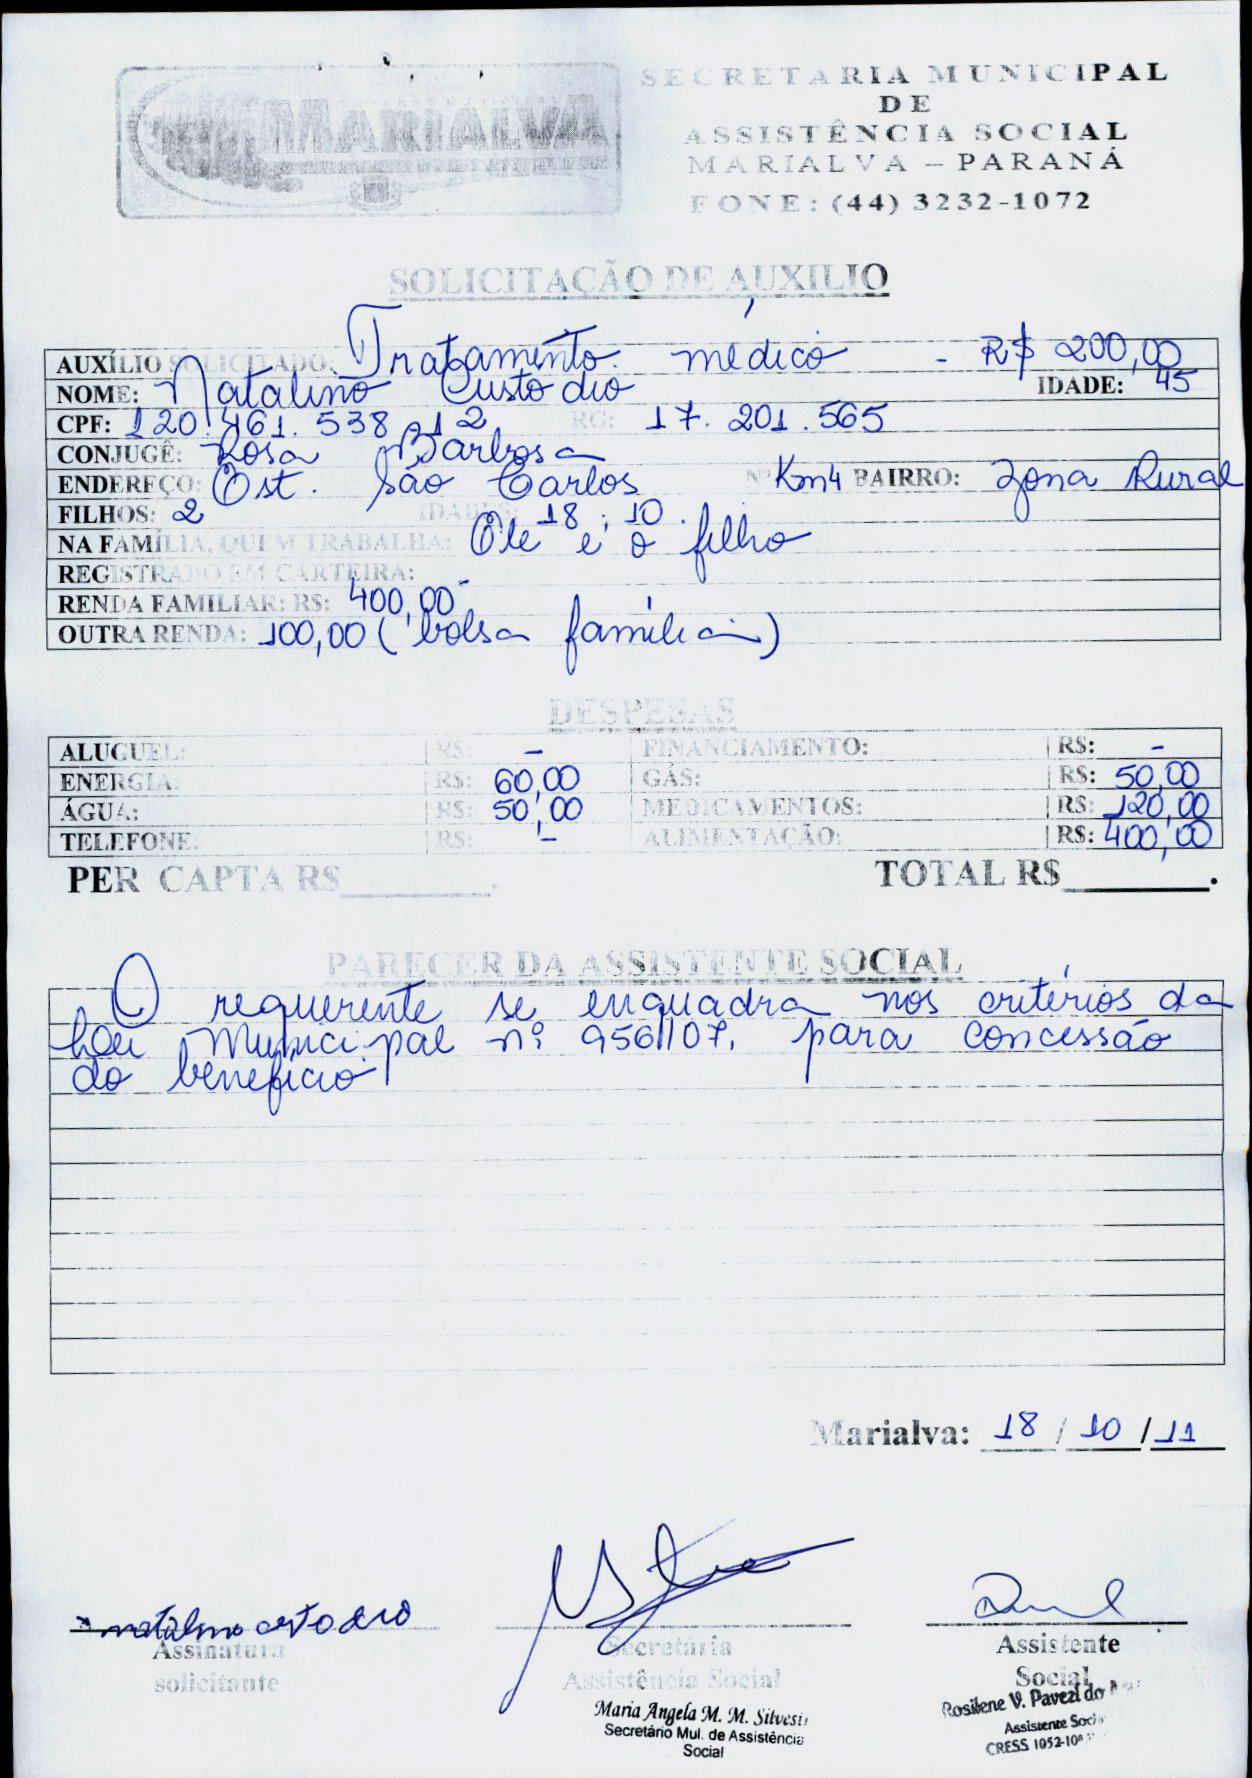 MARIALVA
SECRETARIA MUNICIPAL
DE
ASSISTÊNCIA SOCIAL
MARIALVA – PARANÁ
FONE: (44) 3232-1072
SOLICITAÇÃO DE AUXILIO
AUXÍLIO SOLICITADO: Tratamento médico - R$ 200,00
NOME: Natalino Custodio IDADE: 45
CPF: 120.461.538-12 RG: 17.201.565
CONJUGÊ: Rosa Barbosa
ENDEREÇO: Est. São Carlos Nº Km4 BAIRRO: Zona Rural
FILHOS: 2 IDADES: 18 ; 10.
NA FAMÍLIA, QUEM TRABALHA: Ele e o filho
REGISTRADO EM CARTEIRA: -
RENDA FAMILIAR: R$: 400,00
OUTRA RENDA: 100,00 (bolsa família)
DESPESAS
ALUGUEL: R$: - FINANCIAMENTO: R$: -
ENERGIA: R$: 60,00 GÁS: R$: 50,00
ÁGUA: R$: 50,00 MEDICAMENTOS: R$: 120,00
TELEFONE: R$: - ALIMENTAÇÃO: R$: 400,00
PER CAPTA R$________. TOTAL R$________.
PARECER DA ASSISTENTE SOCIAL
O requerente se enquadra nos critérios da
Lei Municipal nº 956/107, para concessão
do benefício.
Marialva: 18 / 10 / 11
Assinatura
solicitante
Secretária
Assistência Social
Maria Angela M. M. Silvest
Secretário Mul. de Assistência
Social
Assistente
Social
Rosilene V. Pavezi do
Assistente Soci
CRESS 1052-10ª